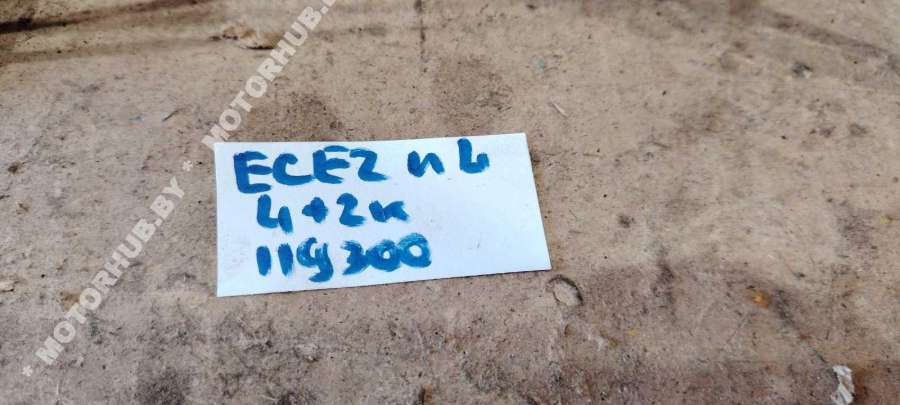 * MOTORHUB.BY * MOTORHUB.B
ECEZ n 4
4+2к
119300